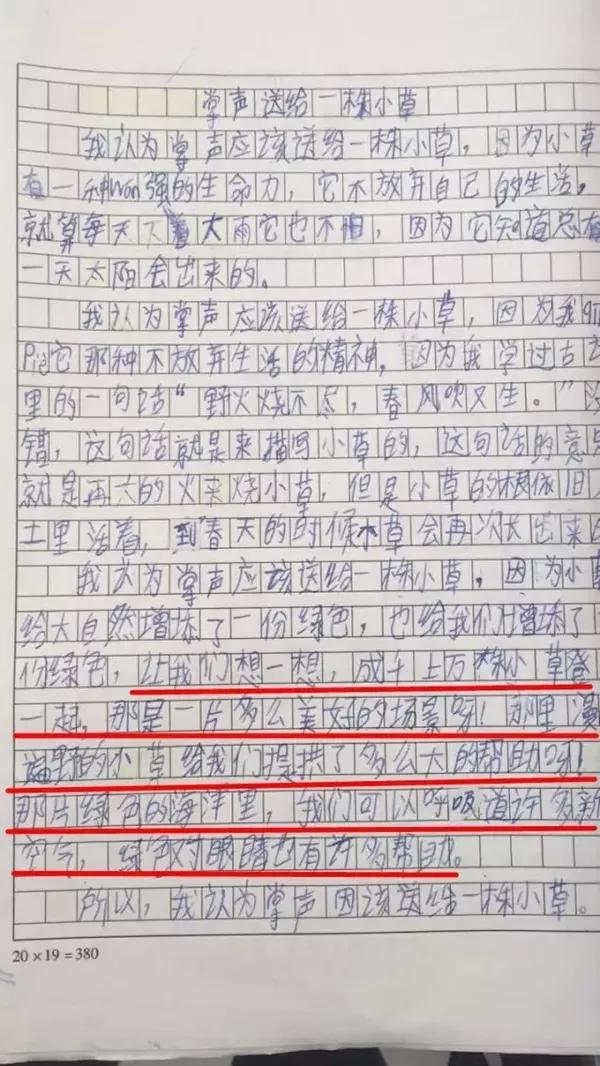 掌声送给一株小草
我认为掌声应该送给一株小草，因为小草
有一种wan强的生命力，它不放弃自己的生活，
就算每天下着大雨它也不怕，因为它知道总有
一天太阳会出来的。
我认为掌声应该送给一株小草，因为我
Pei它那种不放弃生活的精神，因为我学过古
里的一句话“野火烧不尽，春风吹又生。”没
错，这句话就是来描写小草的，这句话的意思
就是再大的火来烧小草，但是小草的根依旧
土里活着，到春天的时候小草会再次长出来的
我认为掌声应该送给一株小草，因为小
给大自然增添了一份绿色，也给我们增添了
份绿色，让我们想一想，成千上万株小草登
一起，那是一片多么美好的场景呀！那里漫
遍野的小草给我们提拱了多么大的帮助呀！
那片绿色的海洋里，我们可以呼吸道许多新
空气，绿色对眼睛也有许多帮助。
所以，我认为掌声因该送给一株小草。
20×19=380